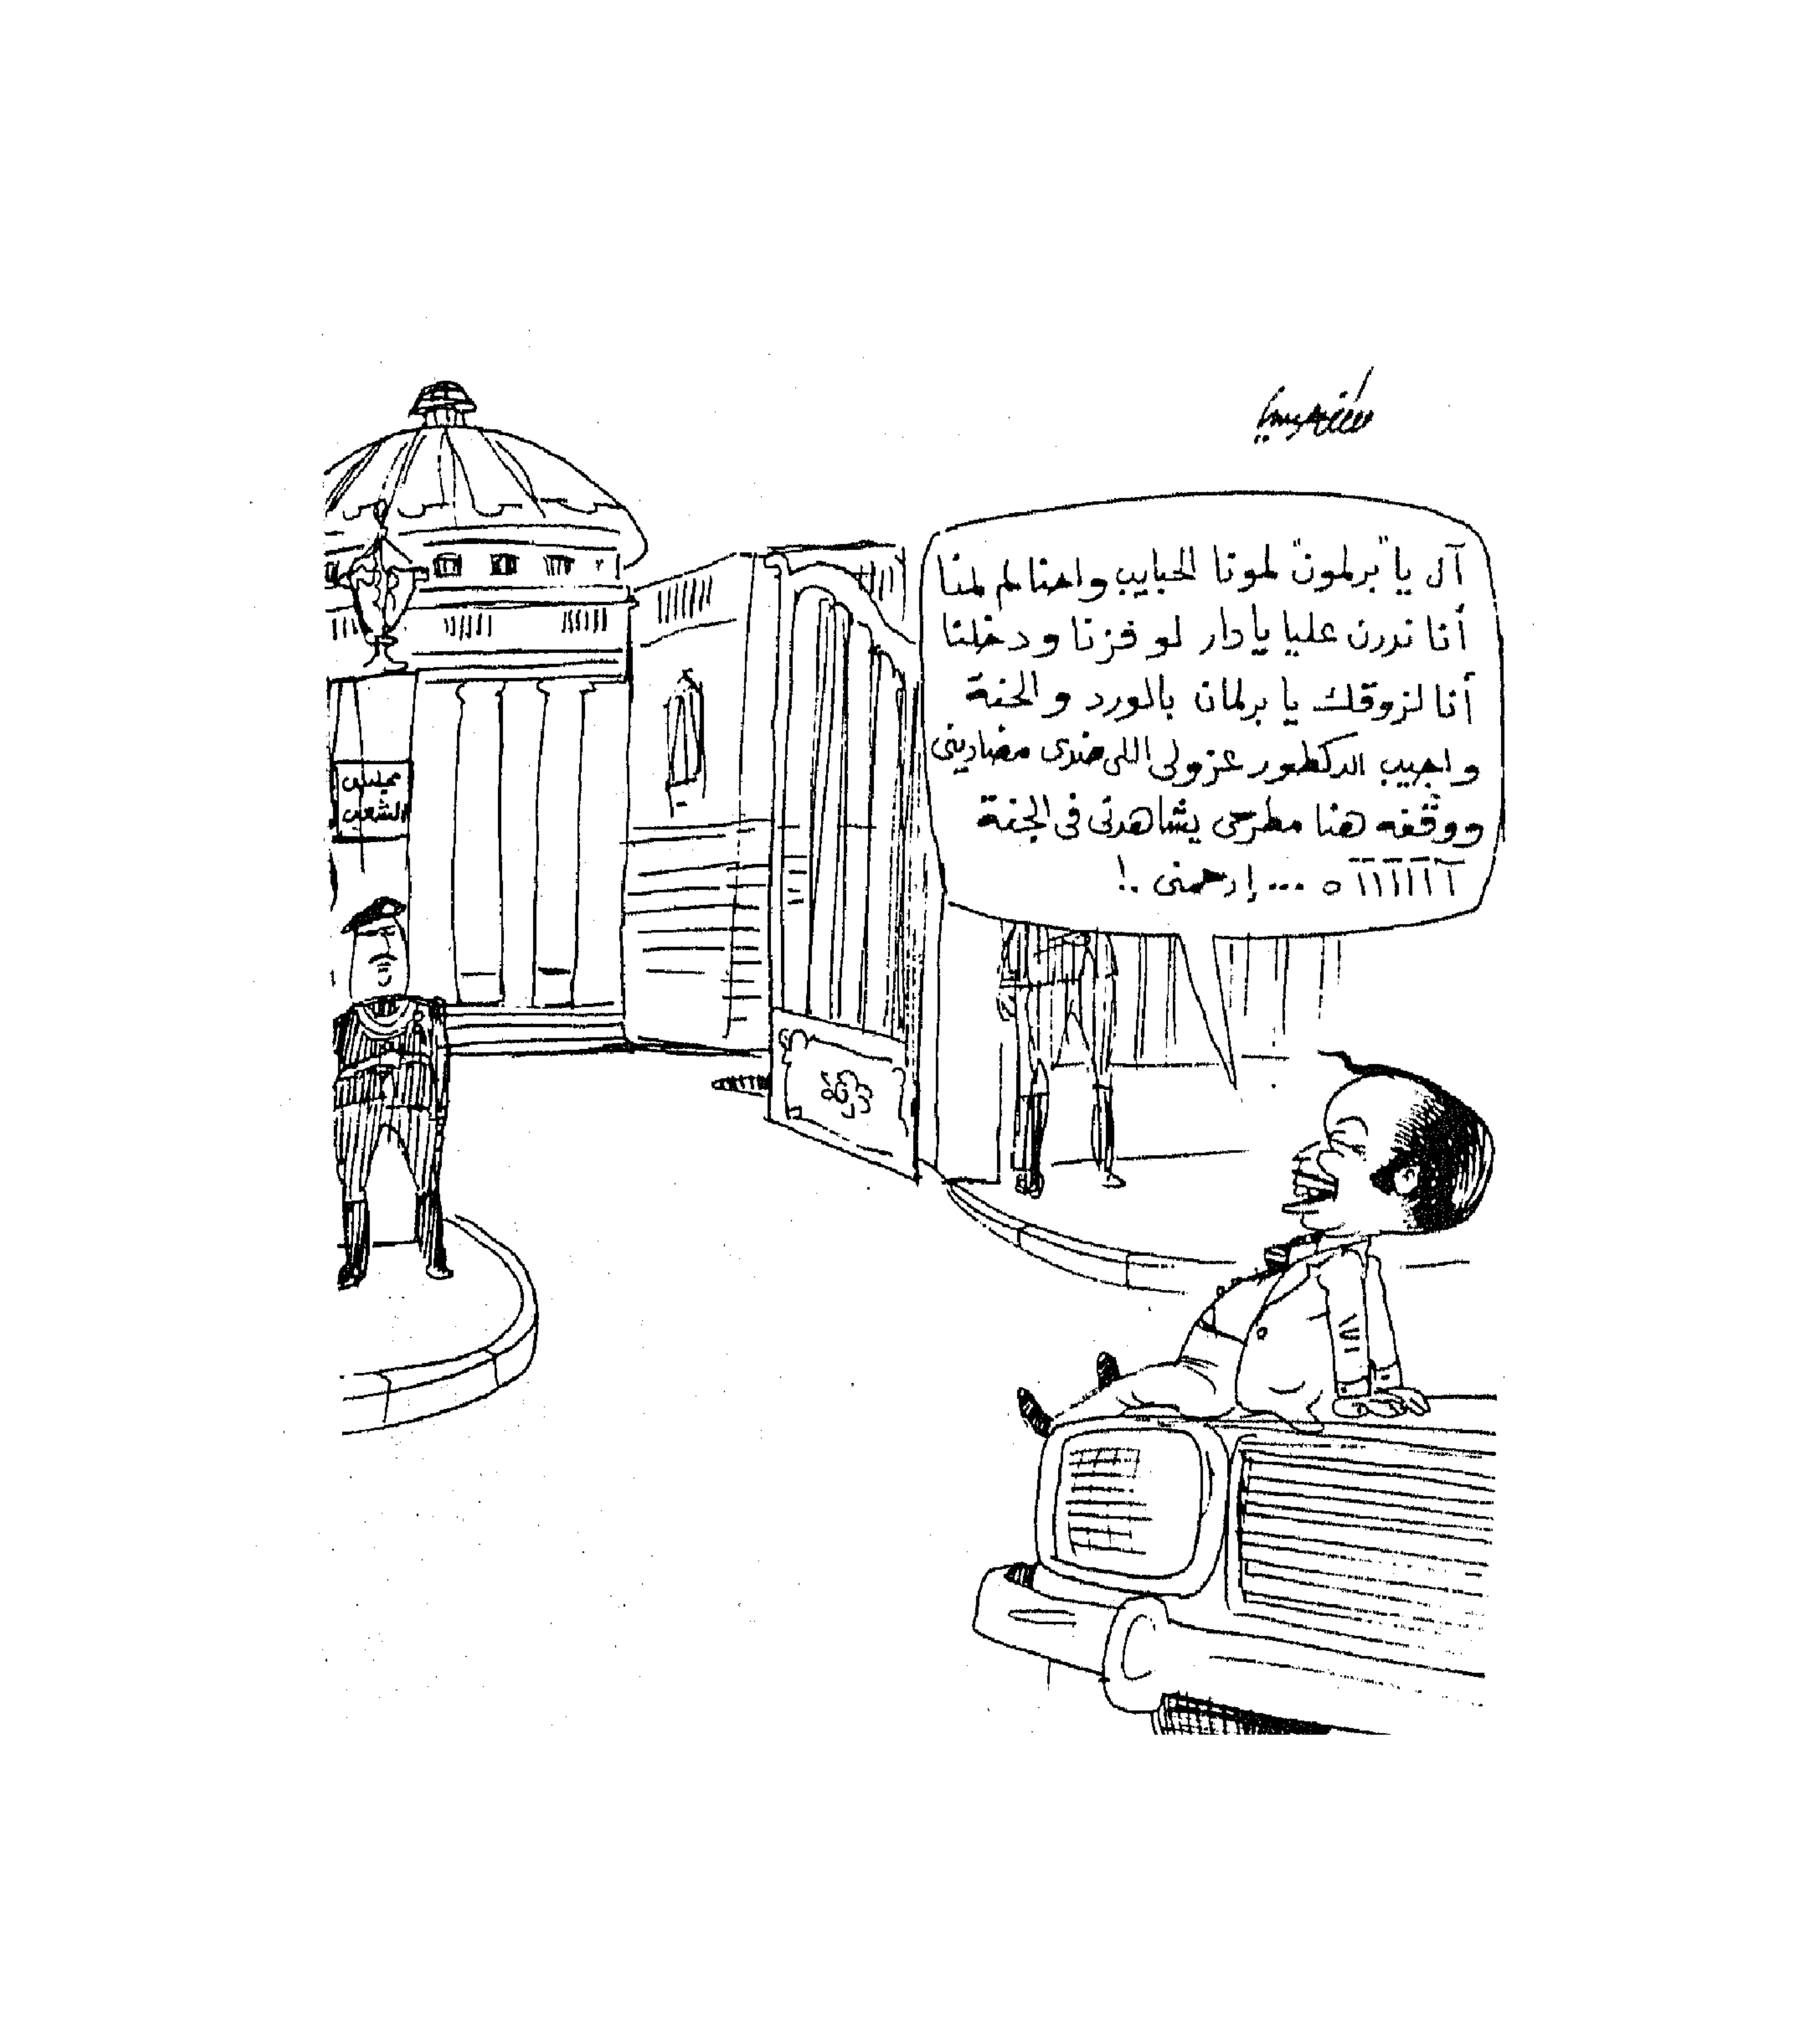 آل يا "برلمون" لمونا الحبايب واحنا لم لمنا
أنا ندرن عليا يا دار لو فزنا ودخلنا
أنا لزوقك يا برلمان بالورد والحنة
واجيب الدكطور عزولى اللى ضدى مضاديني
ووقفه هنا مطرحى يشاهدنى فى الجنة
آآآآآآه ... إرحمنى .!
مجلس
الشعب